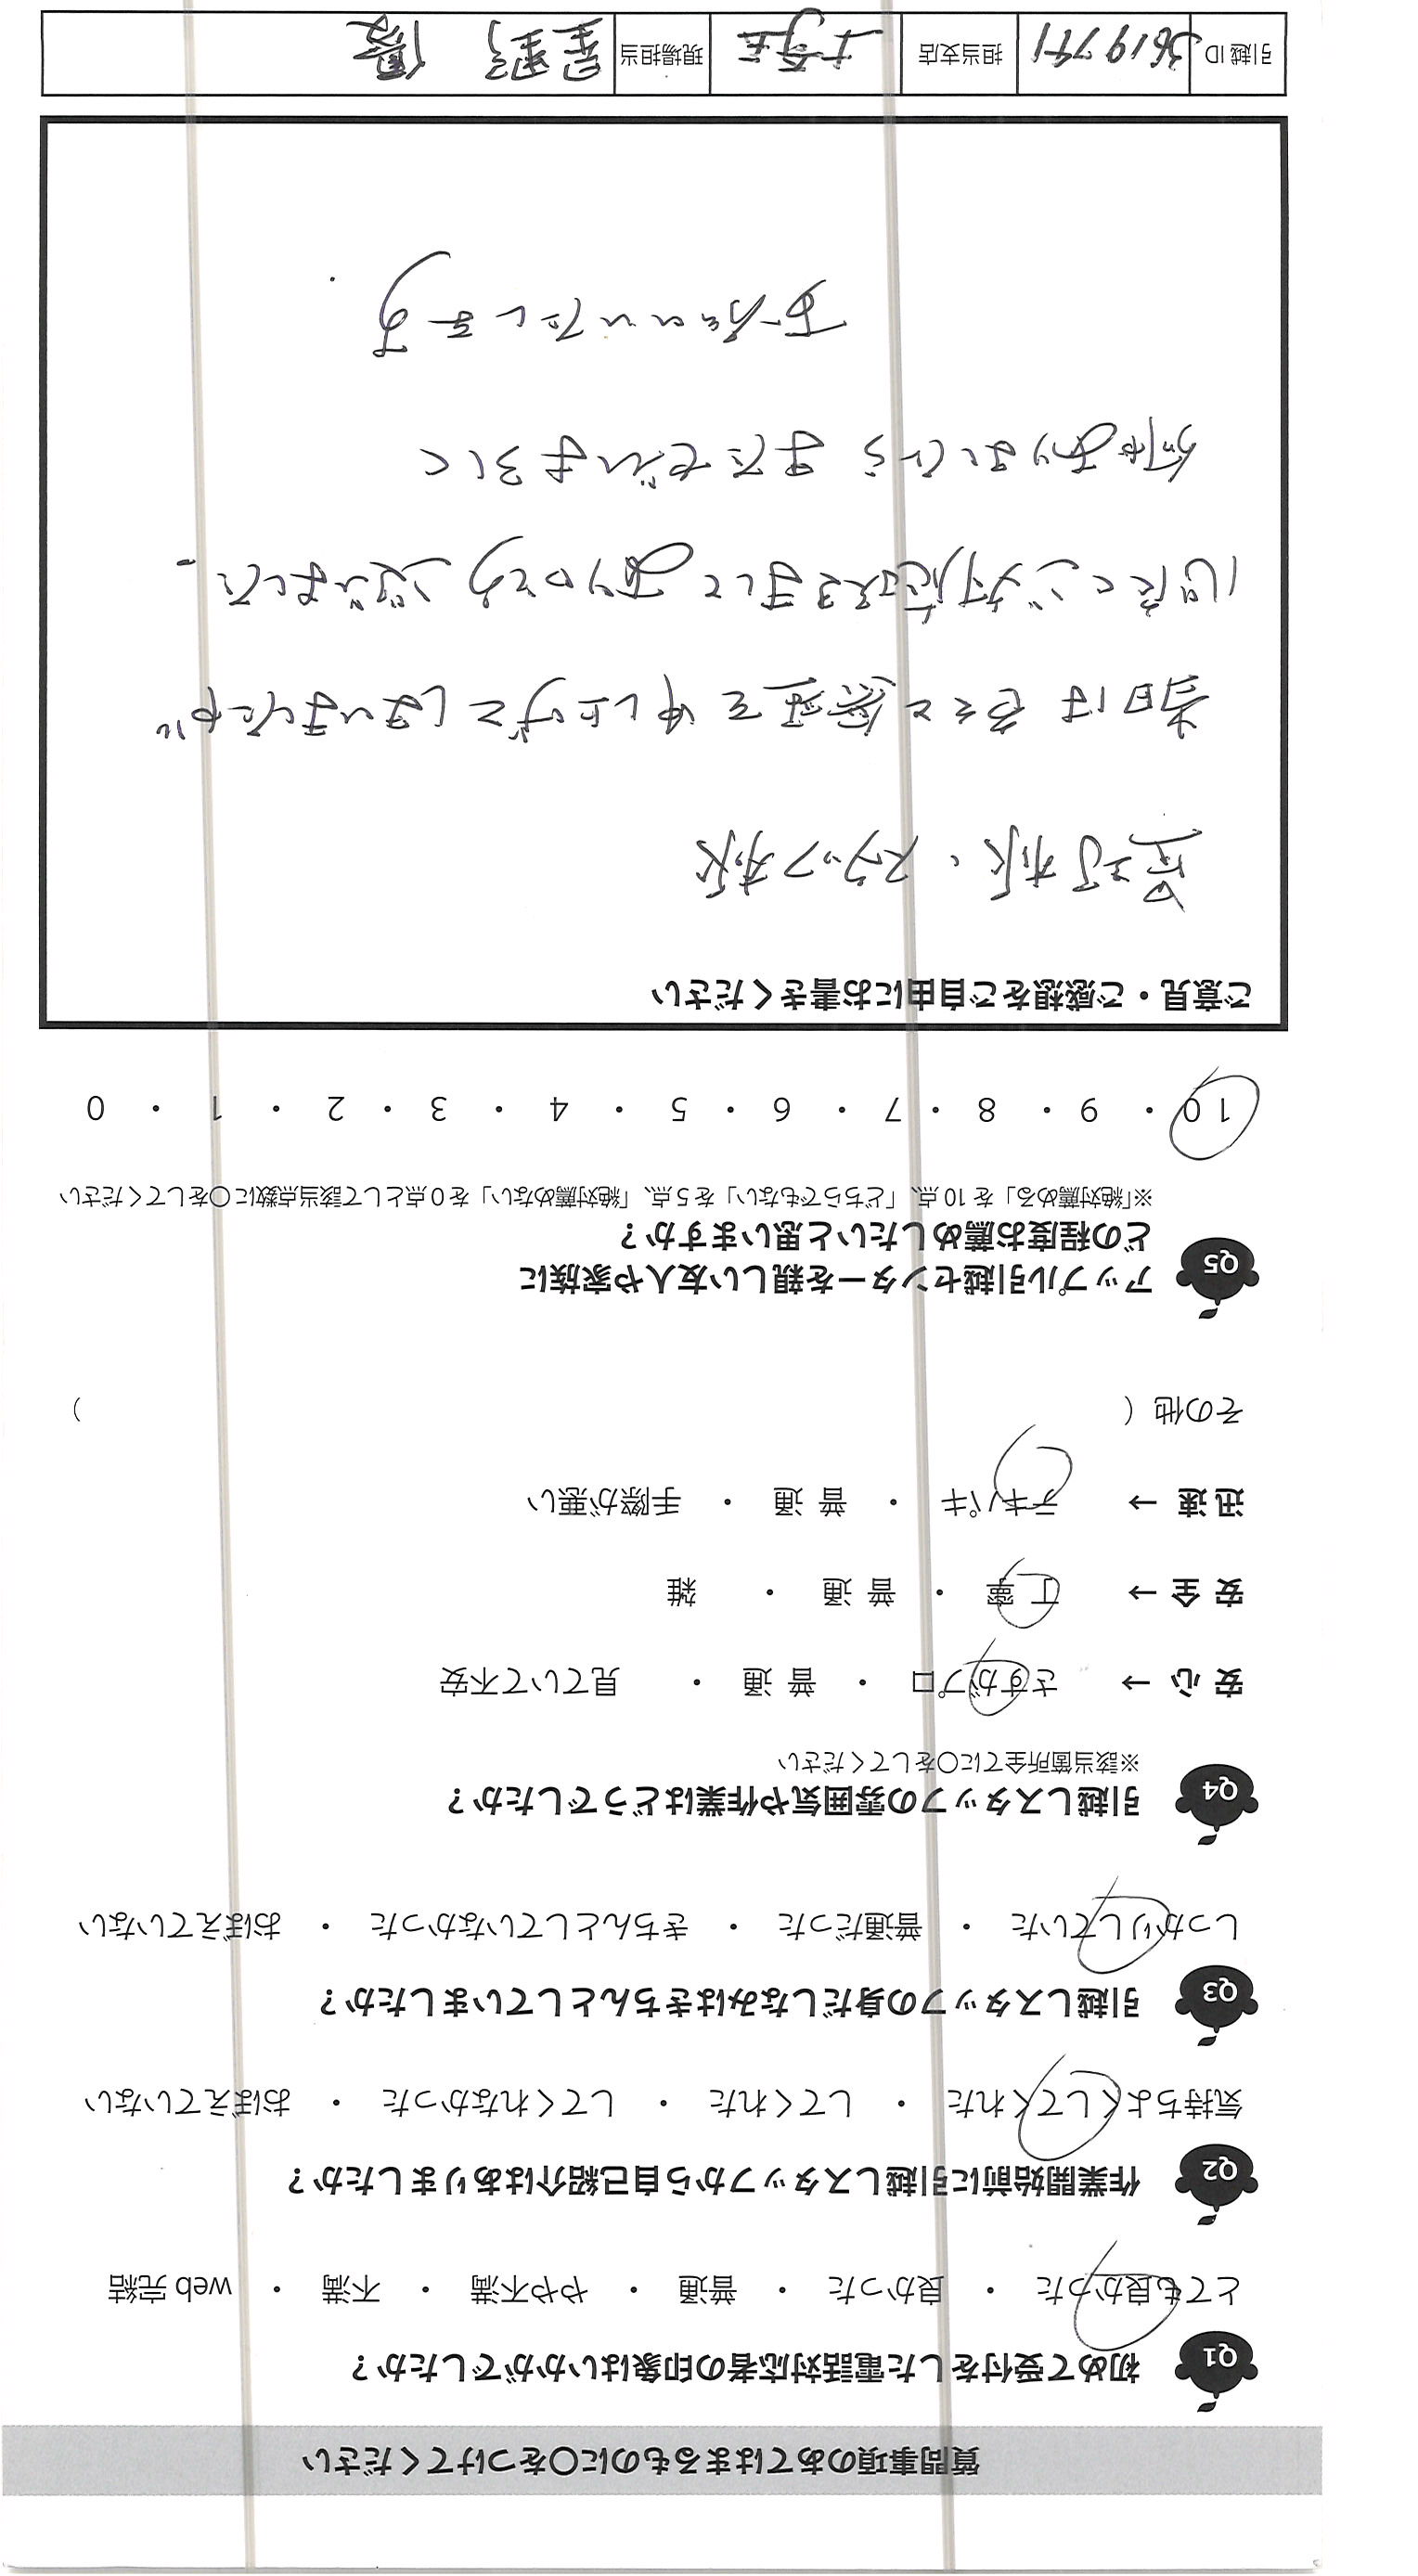 質問事項のあてはまるものに○をつけてください
Q1 初めて受付をした電話対応者の印象はいかがでしたか？
とても良かった ・ 良かった ・ 普通 ・ やや不満 ・ 不満 ・ web 完結
Q2 作業開始前に引越しスタッフから自己紹介はありましたか？
気持ちよくしてくれた ・ してくれた ・ してくれなかった ・ おぼえていない
Q3 引越しスタッフの身だしなみはきちんとしていましたか？
しっかりしていた ・ 普通だった ・ きちんとしていなかった ・ おぼえていない
Q4 引越しスタッフの雰囲気や作業はどうでしたか？
※該当箇所全てに○をしてください
安 心 → さすがプロ ・ 普 通 ・ 見ていて不安
安 全 → 丁 寧 ・ 普 通 ・ 雑
迅 速 → テキパキ ・ 普 通 ・ 手際が悪い
その他（ ）
Q5 アップル引越センターを親しい友人や家族に
どの程度お薦めしたいと思いますか？
※「絶対薦める」を 10 点、「どちらでもない」を 5 点、「絶対薦めない」を 0 点として該当点数に○をしてください
10 ・ 9 ・ 8 ・ 7 ・ 6 ・ 5 ・ 4 ・ 3 ・ 2 ・ 1 ・ 0
ご意見・ご感想をご自由にお書きください
星野様、スタッフ様
当日は色々と無理を申し上げてしまいましたが
ご対応下さいまして ありがとうございました。
何かありましたら またぜひよろしく
お願いいたします
引越 ID 3619741 担当支店 現場担当 星野 優